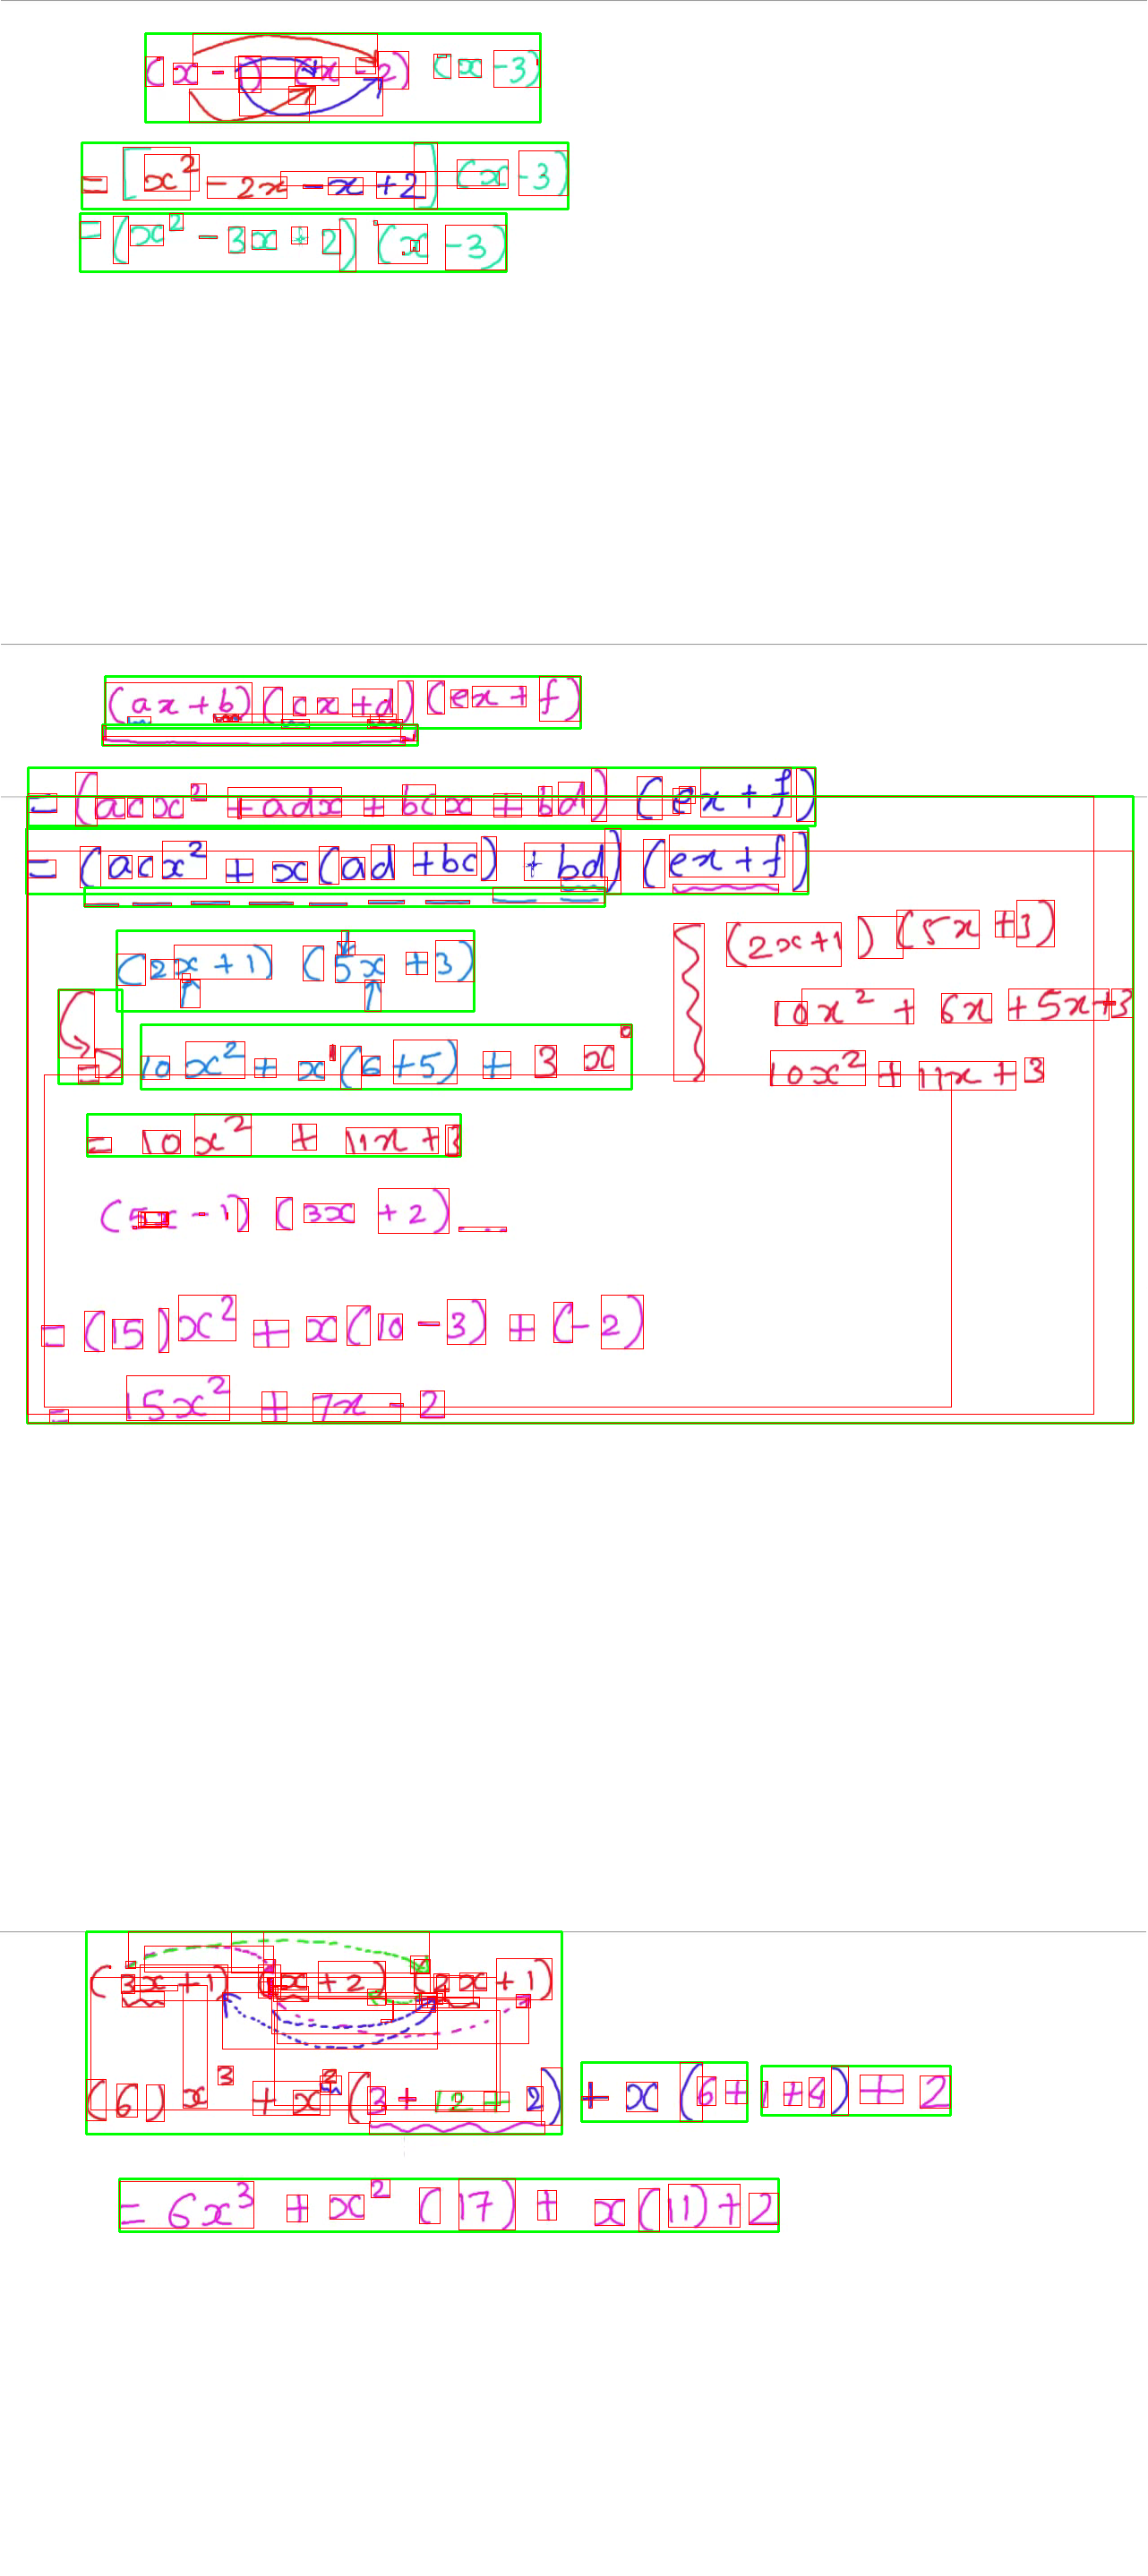 (x - 1) (x - 2) (x - 3)
= [x² - 2x - x + 2] (x - 3)
= (x² - 3x + 2) (x - 3)
(ax + b) (cx + d) (ex + f)
= (acx² + adx + bcx + bd) (ex + f)
= (acx² + x(ad + bc) + bd) (ex + f)
(2x + 1) (5x + 3)
(2x + 1) (5x + 3)
10x² + 6x + 5x + 3
=> 10x² + x¹(6 + 5) + 3 x⁰
10x² + 11x + 3
= 10x² + 11x + 3
(5x - 1) (3x + 2)
= (15)x² + x(10 - 3) + (-2)
= 15x² + 7x - 2
(3x + 1) (x + 2) (2x + 1)
(6) x³ + x² (3 + 12 + 2) + x (6 + 1 + 4) + 2
= 6x³ + x² (17) + x(11) + 2